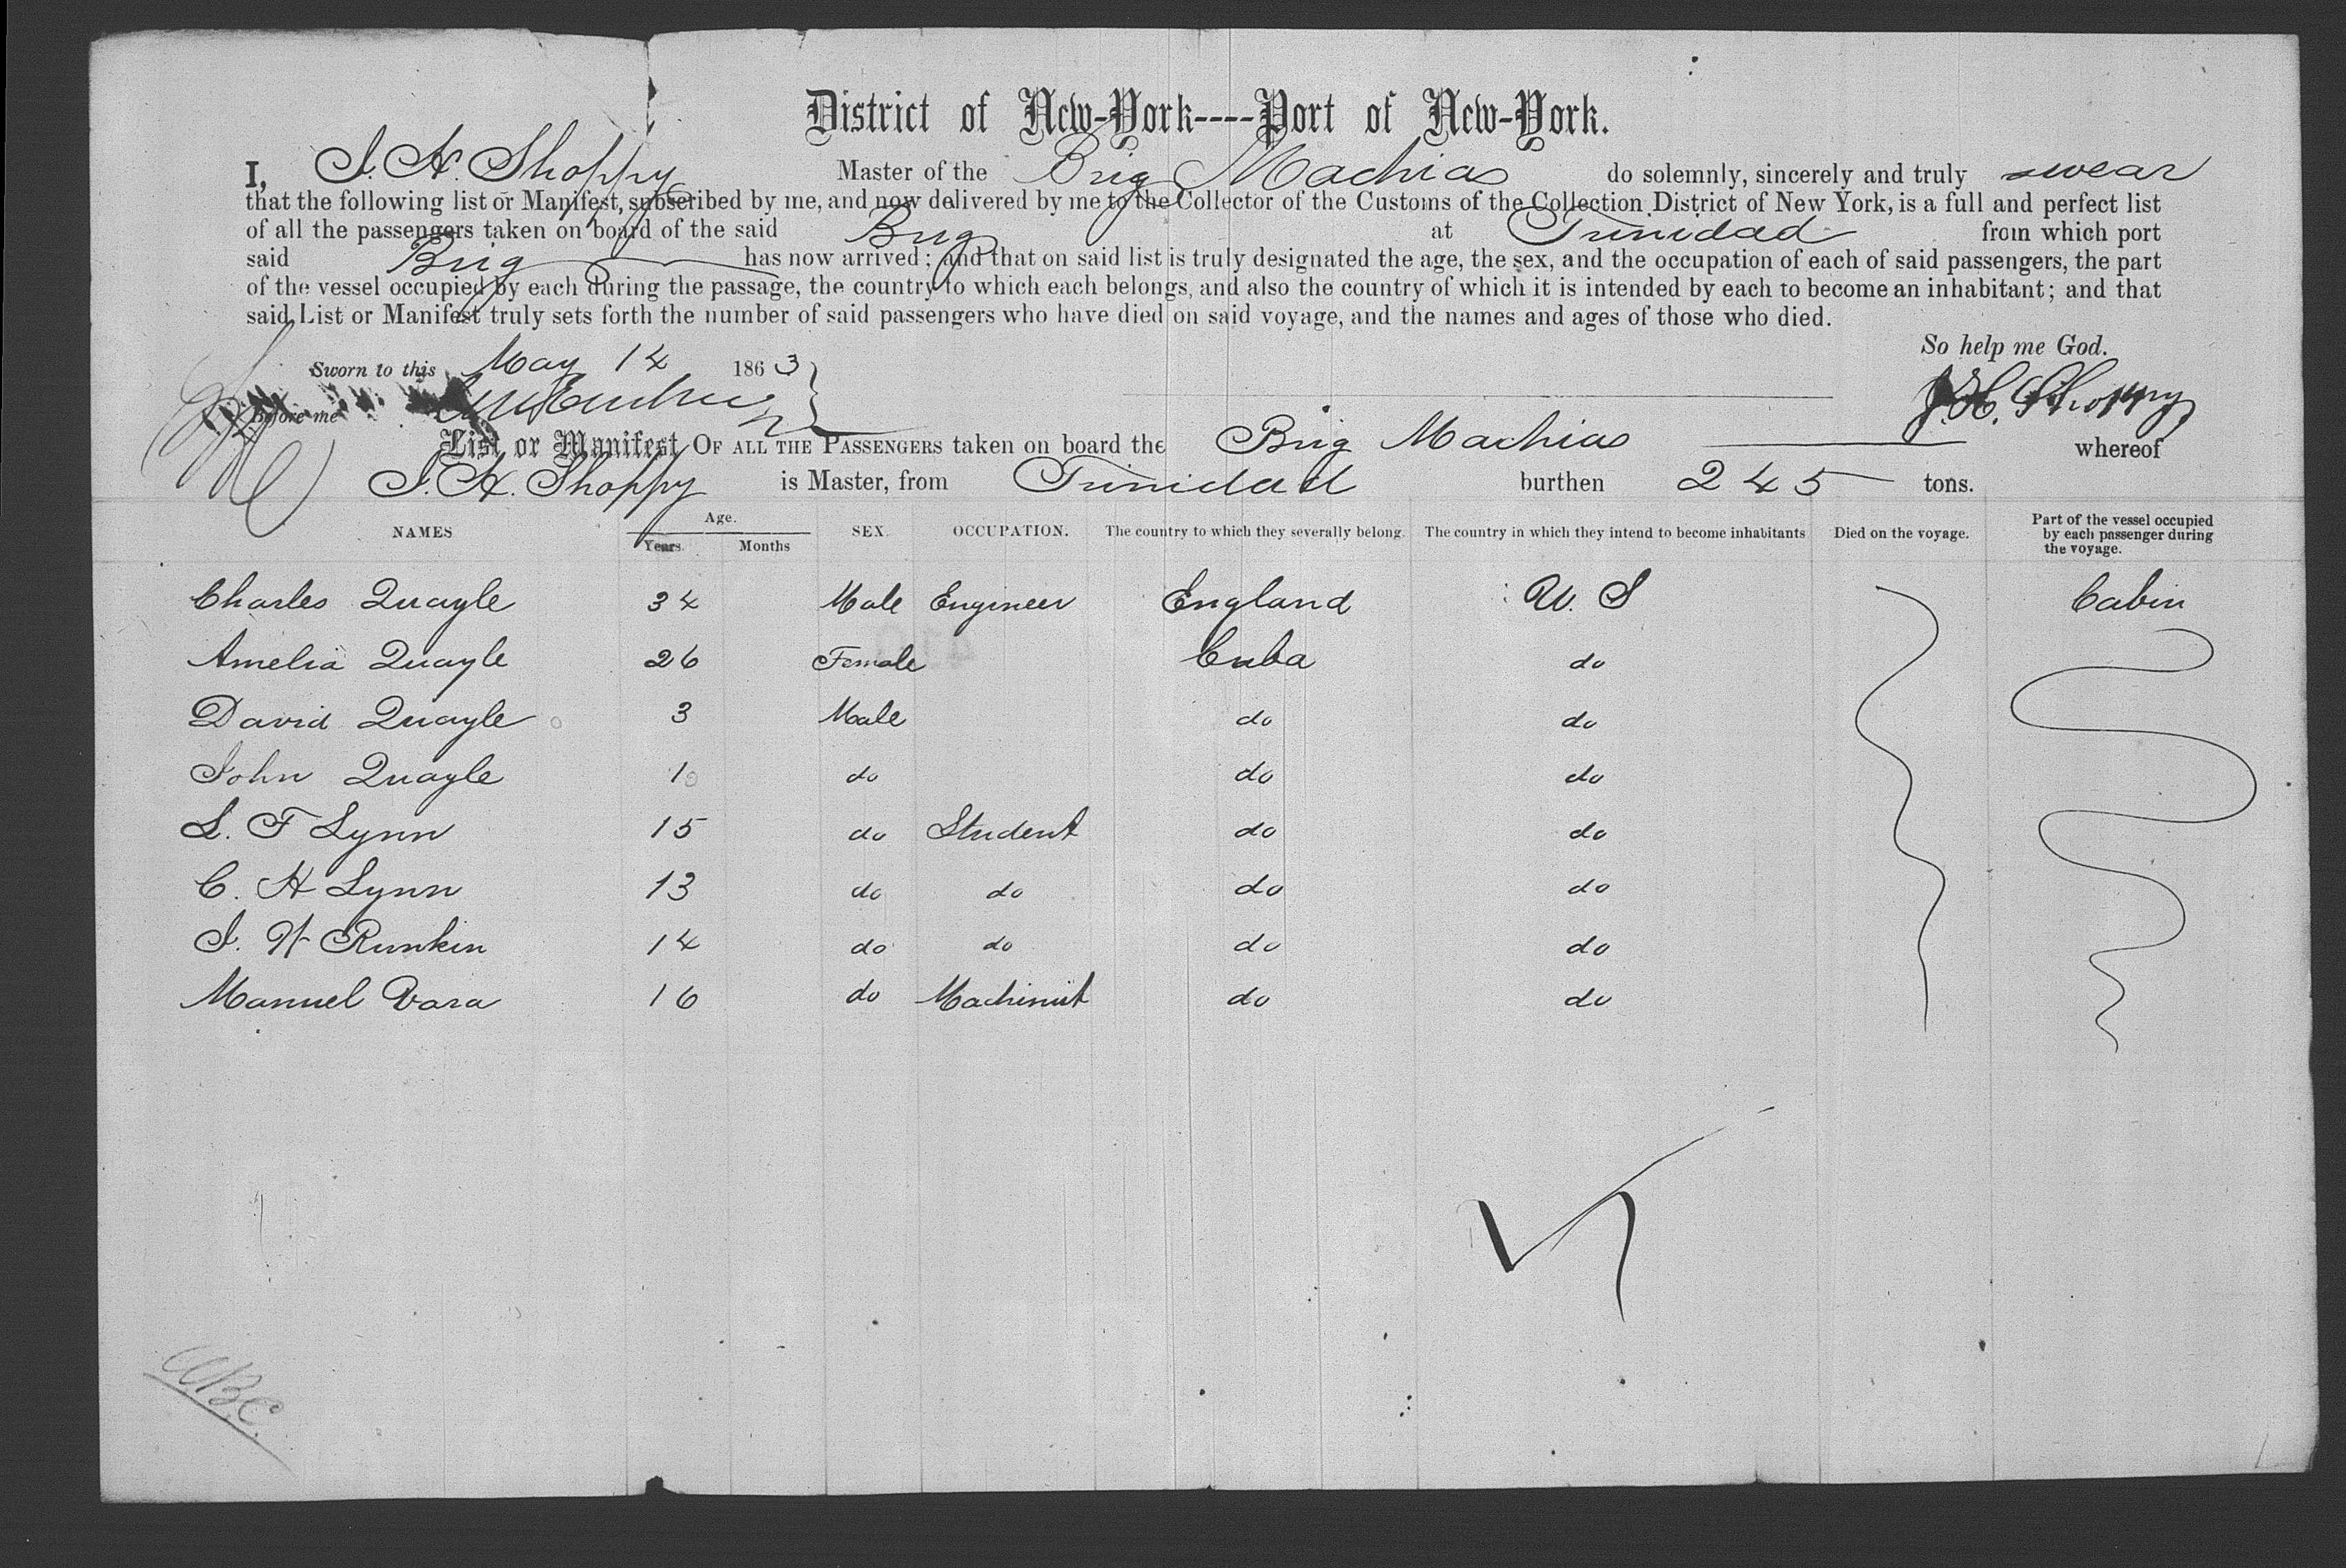 District of New-York----Port of New-York.
I, J. H. Shoppy Master of the Brig Machias do solemnly, sincerely and truly swear
that the following list or Manifest, subscribed by me, and now delivered by me to the Collector of the Customs of the Collection District of New York, is a full and perfect list
of all the passengers taken on board of the said Brig at Trinidad from which port
said Brig has now arrived; and that on said list is truly designated the age, the sex, and the occupation of each of said passengers, the part
of the vessel occupied by each during the passage, the country to which each belongs, and also the country of which it is intended by each to become an inhabitant; and that
said List or Manifest truly sets forth the number of said passengers who have died on said voyage, and the names and ages of those who died.
So help me God.
Sworn to this May 14 1863
J. H. Shoppy
Before me
List or Manifest OF ALL THE PASSENGERS taken on board the Brig Machias whereof
J. H. Shoppy is Master, from Trinidad burthen 245 tons.
NAMES Age. Years. Months SEX. OCCUPATION. The country to which they severally belong. The country in which they intend to become inhabitants Died on the voyage. Part of the vessel occupied by each passenger during the voyage.
Charles Quayle 34 Male Engineer England U. S Cabin
Amelia Quayle 26 Female Cuba do
David Quayle 3 Male do do
John Quayle 1 do do do
L. F Lynn 15 do Student do do
C. H Lynn 13 do do do do
J. W Runkin 14 do do do do
Manuel Vara 16 do Machinist do do